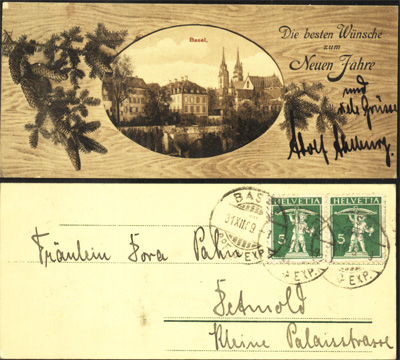 Basel.
Die besten Wünsche
zum
Neuen Jahre
und
viele Grüsse
Adolf
BAS
31.XII.09
EXP.
HELVETIA
5
HELVETIA
5
EXP.
EXP.
Fräulein Dora
Detmold
Kleine Palaisstrasse